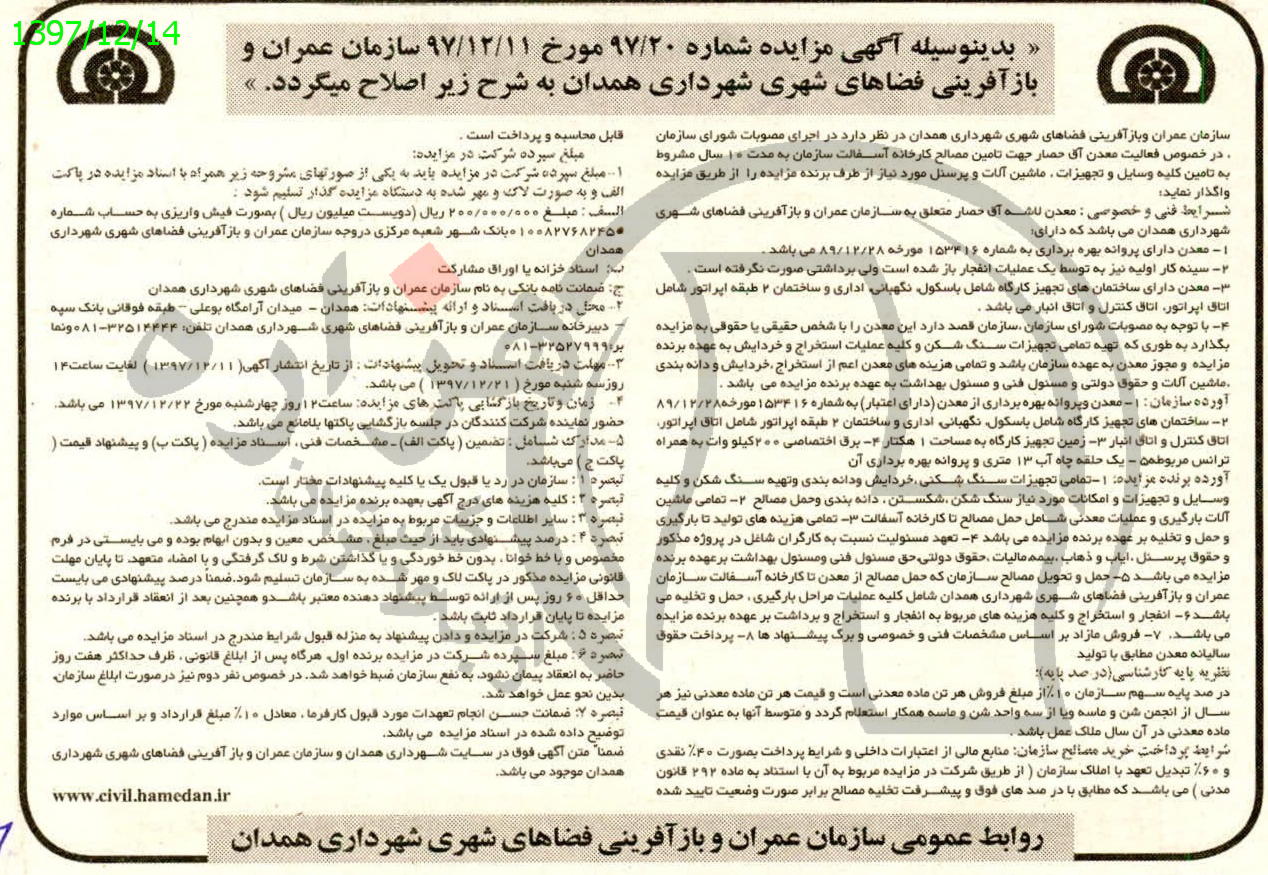 1397/12/14
« بدینوسیله آگهی مزایده شماره ۹۷/۲۰ مورخ ۹۷/۱۲/۱۱ سازمان عمران و
بازآفرینی فضاهای شهری شهرداری همدان به شرح زیر اصلاح میگردد. »
سازمان عمران وبازآفرینی فضاهای شهری شهرداری همدان در نظر دارد در اجرای مصوبات شورای سازمان
، در خصوص فعالیت معدن آق حصار جهت تامین مصالح کارخانه آسفالت سازمان به مدت ۱۰ سال مشروط
به تامین کلیه وسایل و تجهیزات ، ماشین آلات و پرسنل مورد نیاز از طرف برنده مزایده را از طریق مزایده
واگذار نماید:
شرایط فنی و خصوصی : معدن لاشه آق حصار متعلق به سازمان عمران و بازآفرینی فضاهای شهری
شهرداری همدان می باشد که دارای:
۱- معدن دارای پروانه بهره برداری به شماره ۱۵۳۴۱۶ مورخه ۸۹/۱۲/۲۸ می باشد .
۲- سینه کار اولیه نیز به توسط یک عملیات انفجار باز شده است ولی برداشتی صورت نگرفته است .
۳- معدن دارای ساختمان های تجهیز کارگاه شامل باسکول، نگهبانی، اداری و ساختمان ۲ طبقه اپراتور شامل
اتاق اپراتور، اتاق کنترل و اتاق انبار می باشد .
۴- با توجه به مصوبات شورای سازمان ،سازمان قصد دارد این معدن را با شخص حقیقی یا حقوقی به مزایده
بگذارد به طوری که تهیه تمامی تجهیزات سنگ شکن و کلیه عملیات استخراج و خردایش به عهده برنده
مزایده و مجوز معدن به عهده سازمان باشد و تمامی هزینه های معدن اعم از استخراج،خردایش و دانه بندی
،ماشین آلات و حقوق دولتی و مسئول فنی و مسئول بهداشت به عهده برنده مزایده می باشد .
آورده سازمان : ۱- معدن وپروانه بهره برداری از معدن (دارای اعتبار) به شماره ۱۵۳۴۱۶ مورخه۸۹/۱۲/۲۸
۲- ساختمان های تجهیز کارگاه شامل باسکول، نگهبانی، اداری و ساختمان ۲ طبقه اپراتور شامل اتاق اپراتور،
اتاق کنترل و اتاق انبار ۳- زمین تجهیز کارگاه به مساحت ۱ هکتار ۴- برق اختصاصی ۲۰۰کیلو وات به همراه
ترانس مربوطه۵- یک حلقه چاه آب ۱۳ متری و پروانه بهره برداری آن
آورده برنده مزایده: ۱-تمامی تجهیزات سنگ شکنی ،خردایش ودانه بندی وتهیه سنگ شکن و کلیه
وسایل و تجهیزات و امکانات مورد نیاز سنگ شکن ،شکستن ، دانه بندی وحمل مصالح ۲- تمامی ماشین
آلات بارگیری و عملیات معدنی شامل حمل مصالح تا کارخانه آسفالت ۳- تمامی هزینه های تولید تا بارگیری
و حمل و تخلیه بر عهده برنده مزایده می باشد ۴- تعهد مسئولیت نسبت به کارگران شاغل در پروژه مذکور
و حقوق پرسنل ،ایاب و ذهاب ،بیمه،مالیات ،حقوق دولتی،حق مسئول فنی ومسئول بهداشت برعهده برنده
مزایده می باشد ۵- حمل و تحویل مصالح سازمان که حمل مصالح از معدن تا کارخانه آسفالت سازمان
عمران و بازآفرینی فضاهای شهری شهرداری همدان شامل کلیه عملیات مراحل بارگیری ، حمل و تخلیه می
باشد۶- انفجار و استخراج و کلیه هزینه های مربوط به انفجار و استخراج و برداشت بر عهده برنده مزایده
می باشد. ۷- فروش مازاد بر اساس مشخصات فنی و خصوصی و برگ پیشنهاد ها ۸- پرداخت حقوق
سالیانه معدن مطابق با تولید
نظریه پایه کارشناسی(در صد پایه):
در صد پایه سهم سازمان ۱۰٪از مبلغ فروش هر تن ماده معدنی است و قیمت هر تن ماده معدنی نیز هر
سال از انجمن شن و ماسه ویا از سه واحد شن و ماسه همکار استعلام گردد و متوسط آنها به عنوان قیمت
ماده معدنی در آن سال ملاک عمل باشد .
شرایط پرداخت خرید مصالح سازمان: منابع مالی از اعتبارات داخلی و شرایط پرداخت بصورت ۴۰٪ نقدی
و ۶۰٪ تبدیل تعهد با املاک سازمان ( از طریق شرکت در مزایده مربوط به آن با استناد به ماده ۲۹۲ قانون
مدنی ) می باشد که مطابق با در صد های فوق و پیشرفت تخلیه مصالح برابر صورت وضعیت تایید شده
قابل محاسبه و پرداخت است .
مبلغ سپرده شرکت در مزایده:
۱-مبلغ سپرده شرکت در مزایده باید به یکی از صورتهای مشروحه زیر همراه با اسناد مزایده در پاکت
الف و به صورت لاک و مهر شده به دستگاه مزایده گذار تسلیم شود :
الف : مبلغ ۲۰۰/۰۰۰/۰۰۰ ریال (دویست میلیون ریال ) بصورت فیش واریزی به حساب شماره
۰۱۰۰۸۲۷۶۸۲۴۵۰۵بانک شهر شعبه مرکزی دروجه سازمان عمران و بازآفرینی فضاهای شهری شهرداری
همدان
ب: اسناد خزانه یا اوراق مشارکت
ج: ضمانت نامه بانکی به نام سازمان عمران و بازآفرینی فضاهای شهری شهرداری همدان
۲- محل دریافت اسناد و ارائه پیشنهادات: همدان - میدان آرامگاه بوعلی - طبقه فوقانی بانک سپه
- دبیرخانه سازمان عمران و بازآفرینی فضاهای شهری شهرداری همدان تلفن: ۳۲۵۱۴۴۴۴-۰۸۱ونما
بر:۳۲۵۲۷۹۹۹-۰۸۱
۳-مهلت دریافت اسناد و تحویل پیشنهادات : از تاریخ انتشار آگهی( ۱۳۹۷/۱۲/۱۱ ) لغایت ساعت۱۴
روزسه شنبه مورخ ( ۱۳۹۷/۱۲/۲۱ ) می باشد.
۴- زمان وتاریخ بازگشایی پاکت های مزایده: ساعت۱۲روز چهارشنبه مورخ ۱۳۹۷/۱۲/۲۲ می باشد.
حضور نماینده شرکت کنندگان در جلسه بازگشایی پاکتها بلامانع می باشد.
۵- مدارک شامل : تضمین ( پاکت الف) - مشخصات فنی ، اسناد مزایده ( پاکت ب) و پیشنهاد قیمت (
پاکت ج ) می‌باشد.
تبصره ۱ : سازمان در رد یا قبول یک یا کلیه پیشنهادات مختار است.
تبصره ۲ : کلیه هزینه های درج آگهی بعهده برنده مزایده می باشد.
تبصره ۳ : سایر اطلاعات و جزییات مربوط به مزایده در اسناد مزایده مندرج می باشد.
تبصره ۴ : درصد پیشنهادی باید از حیث مبلغ ، مشخص، معین و بدون ابهام بوده و می بایستی در فرم
مخصوص و با خط خوانا ، بدون خط خوردگی و یا گذاشتن شرط و لاک گرفتگی و با امضاء متعهد، تا پایان مهلت
قانونی مزایده مذکور در پاکت لاک و مهر شده به سازمان تسلیم شود.ضمنا درصد پیشنهادی می بایست
حداقل ۶۰ روز پس از ارائه توسط پیشنهاد دهنده معتبر باشدو همچنین بعد از انعقاد قرارداد با برنده
مزایده تا پایان قرارداد ثابت باشد .
تبصره ۵ : شرکت در مزایده و دادن پیشنهاد به منزله قبول شرایط مندرج در اسناد مزایده می باشد.
تبصره ۶ : مبلغ سپرده شرکت در مزایده برنده اول، هرگاه پس از ابلاغ قانونی ، ظرف حداکثر هفت روز
حاضر به انعقاد پیمان نشود، به نفع سازمان ضبط خواهد شد. در خصوص نفر دوم نیز درصورت ابلاغ سازمان،
بدین نحو عمل خواهد شد.
تبصره ۷: ضمانت حسن انجام تعهدات مورد قبول کارفرما ، معادل ۱۰٪ مبلغ قرارداد و بر اساس موارد
توضیح داده شده در اسناد مزایده می باشد.
ضمنا" متن آگهی فوق در سایت شهرداری همدان و سازمان عمران و باز آفرینی فضاهای شهری شهرداری
همدان موجود می باشد.
www.civil.hamedan.ir
روابط عمومی سازمان عمران و بازآفرینی فضاهای شهری شهرداری همدان